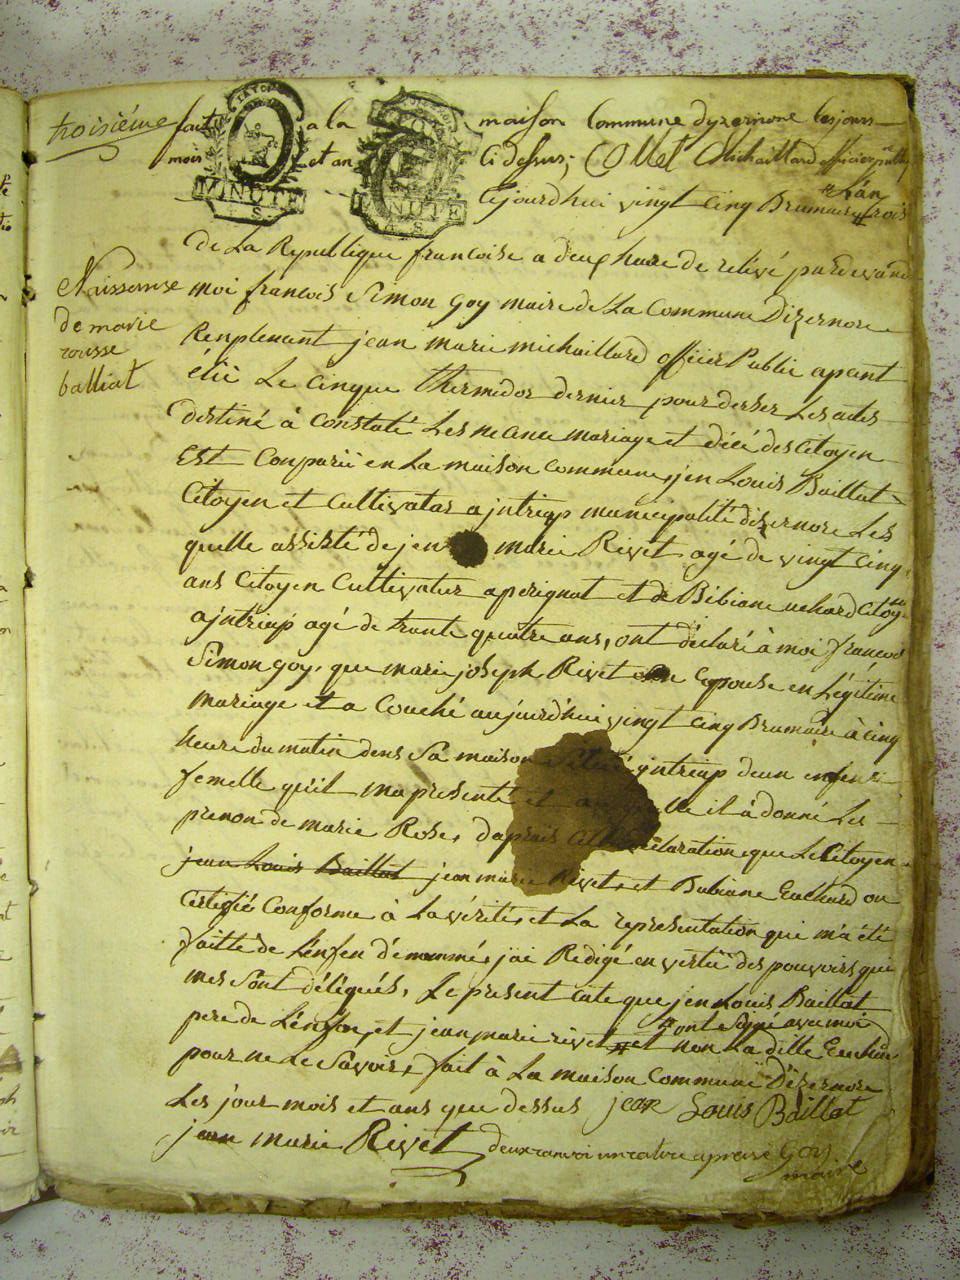 troisième fait a la maison Commune dyzernore les jours
mois et an Ci dessus; Collet Michaillard officier public
MINUTE MINUTE
A. S.
Cejourdhui vingt Cinq Brumaire Lan trois
de La Republique francoise a deux heure de relevé pardevand
Naissansse de marie rousse balliat
moi francois Simon Goy maire de La Commune Dizernore
Renplenant jean marie michaillard officier Public ayant
élü Le Cinque Thermidor dernier pour desser Les actes
destiné à Constaté Les mariage et décé des Citoyen
Est Conparü en La maison Commune, jen Louis Baillat
Citoyen et Cultivatar ajntriap municipalité dizernore Les
quelle assisté de jen marie Rivet agé de vingt Cinq
ans Citoyen Cultivatur aperignat et de Bibiane
ajntriap agé de trante quatre ans, ont déclaré à moi françois
Simon Goy, que marie joseph Rivet Epouse en Légitime
mariage et a Couché aujourdhui vingt Cinq Brumaire à Cinq
heure du matin dens Sa maison jntriap deun enfen
femelle quil ma presenté et il à donné Les
prenon de marie Rose, daprais declaration que Le Citoyen
jean Louis Baillat jean marie Rivet, et Bubiane Euchard on
Certifié Conforme à La vérité, et La representation qui m'a été
faitte de Lenfen dénommé, jai Redigé en vertü des pouvoirs qui
mes Sont délégués, Le present acte que jen Louis Baillat
pere de Lénfan, et jean marie rivet ont Signé avec moi et non La ditte
pour ne Le Savoir, fait à La maison Commune Dizernore
Les jour mois et ans que dessus jean Louis Baillat
jean marie Rivet deux ranvoi un ratur aprouvé Goy
maire